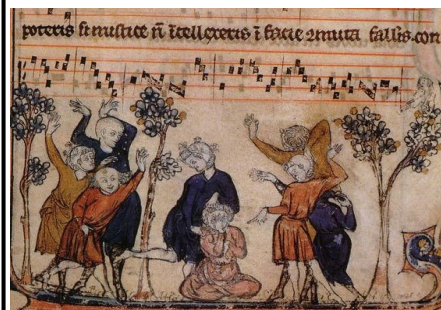 poteris si mustice ñ ĩtellexeris ĩ facie 2muta fallis. con